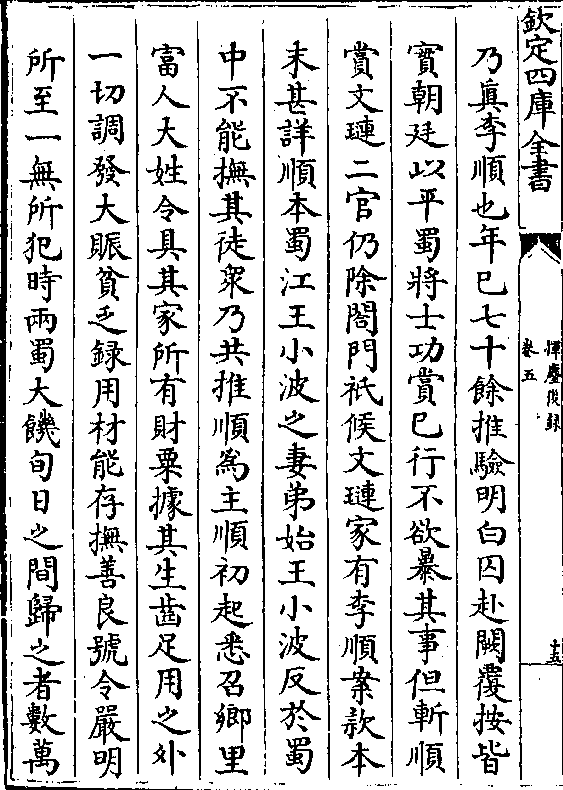 欽定四庫全書
揮麈後録
卷五
十五
乃眞李順也年已七十餘推驗明白囚赴闕覆按皆
實朝廷以平蜀將士功賞已行不欲暴其事但斬順
賞文璉二官仍除閤門祇候文璉家有李順案款本
末甚詳順本蜀江王小波之妻弟始王小波反於蜀
中不能撫其徒衆乃共推順爲主順初起悉召鄉里
富人大姓令具其家所有財粟據其生齒足用之外
一切調發大賑貧乏録用材能存撫善良號令嚴明
所至一無所犯時兩蜀大饑旬日之間歸之者數萬